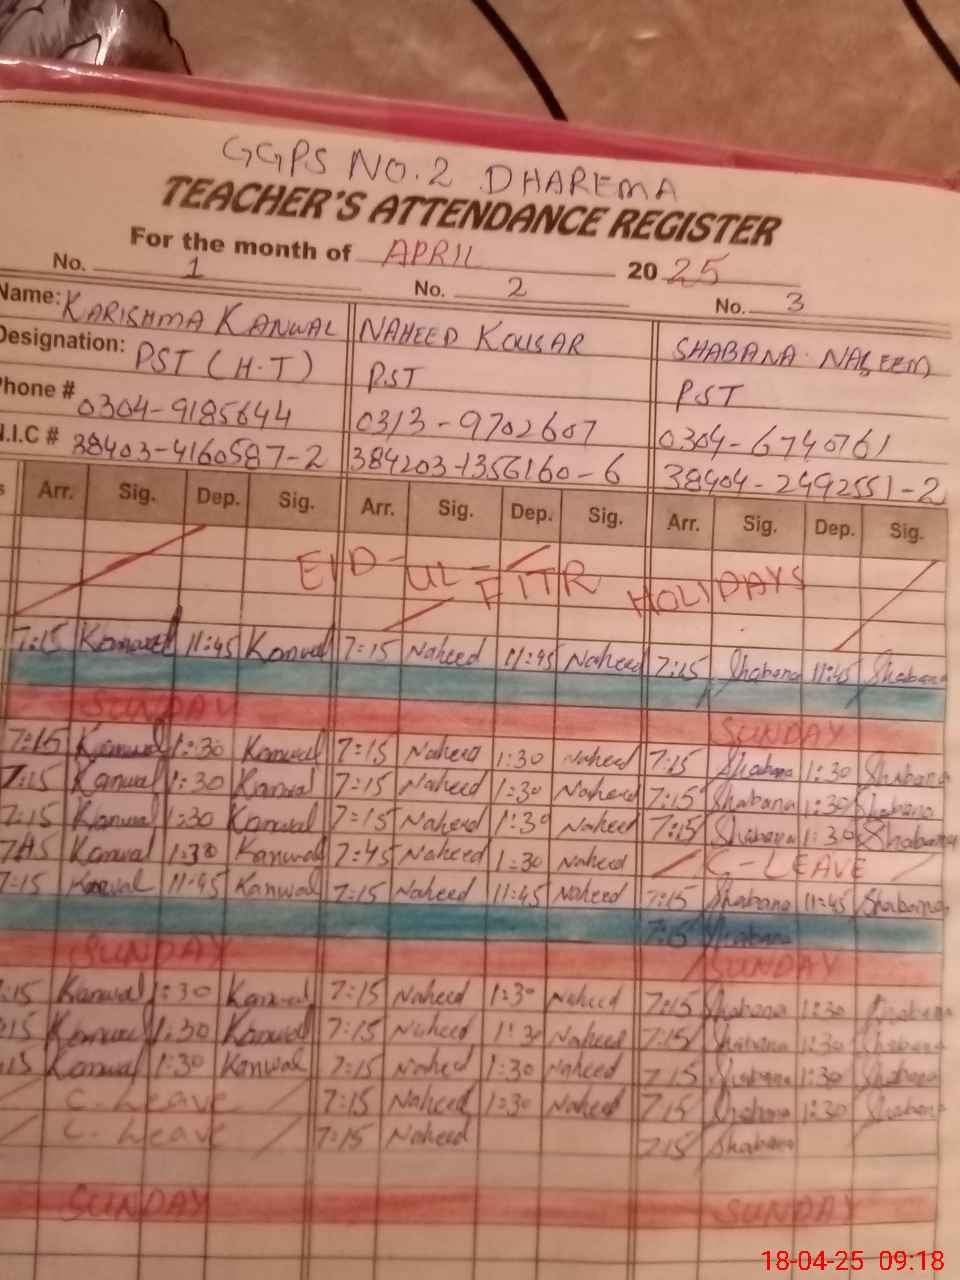 GGPS NO.2 DHAREMA
TEACHER'S ATTENDANCE REGISTER
For the month of APRIL 2025
No. 1 No. 2 No. 3
Name: KARISHMA KANWAL NAHEED KOUSAR SHABANA NASEEM
Designation: PST (H.T) PST PST
Phone # 0304-9185644 0313-9702607 0304-6740761
N.I.C # 38403-4160587-2 384203-1356160-6 38404-2492551-2
s Arr. Sig. Dep. Sig. Arr. Sig. Dep. Sig. Arr. Sig. Dep. Sig.
EID-UL-FITR HOLIDAYS
7:15 Kanwal 11:45 Kanwal 7:15 Naheed 11:45 Naheed 7:15 Shabana 11:45 Shabana
SUNDAY SUNDAY
7:15 Kanwal 1:30 Kanwal 7:15 Naheed 1:30 Naheed 7:15 Shabana 1:30 Shabana
7:15 Kanwal 1:30 Kanwal 7:15 Naheed 1:30 Naheed 7:15 Shabana 1:30 Shabana
7:15 Kanwal 1:30 Kanwal 7:15 Naheed 1:30 Naheed 7:15 Shabana 1:30 Shabana
Kanwal 1:30 Kanwal 7:45 Naheed 1:30 Naheed C-LEAVE
7:15 Kanwal 11:45 Kanwal 7:15 Naheed 11:45 Naheed 7:15 Shabana 11:45 Shabana
7:15 Shabana
SUNDAY SUNDAY
:15 Kanwal 1:30 Kanwal 7:15 Naheed 1:30 Naheed 7:15 Shabana 1:30 Shabana
:15 Kanwal 1:30 Kanwal 7:15 Naheed 1:30 Naheed 7:15 Shabana 1:30 Shabana
:15 Kanwal 1:30 Kanwal 7:15 Naheed 1:30 Naheed 7:15 Shabana 1:30 Shabana
C. Leave 7:15 Naheed 1:30 Naheed 7:15 Shabana 1:30 Shabana
C. Leave 7:15 Naheed 7:15 Shabana
SUNDAY SUNDAY
18-04-25 09:18